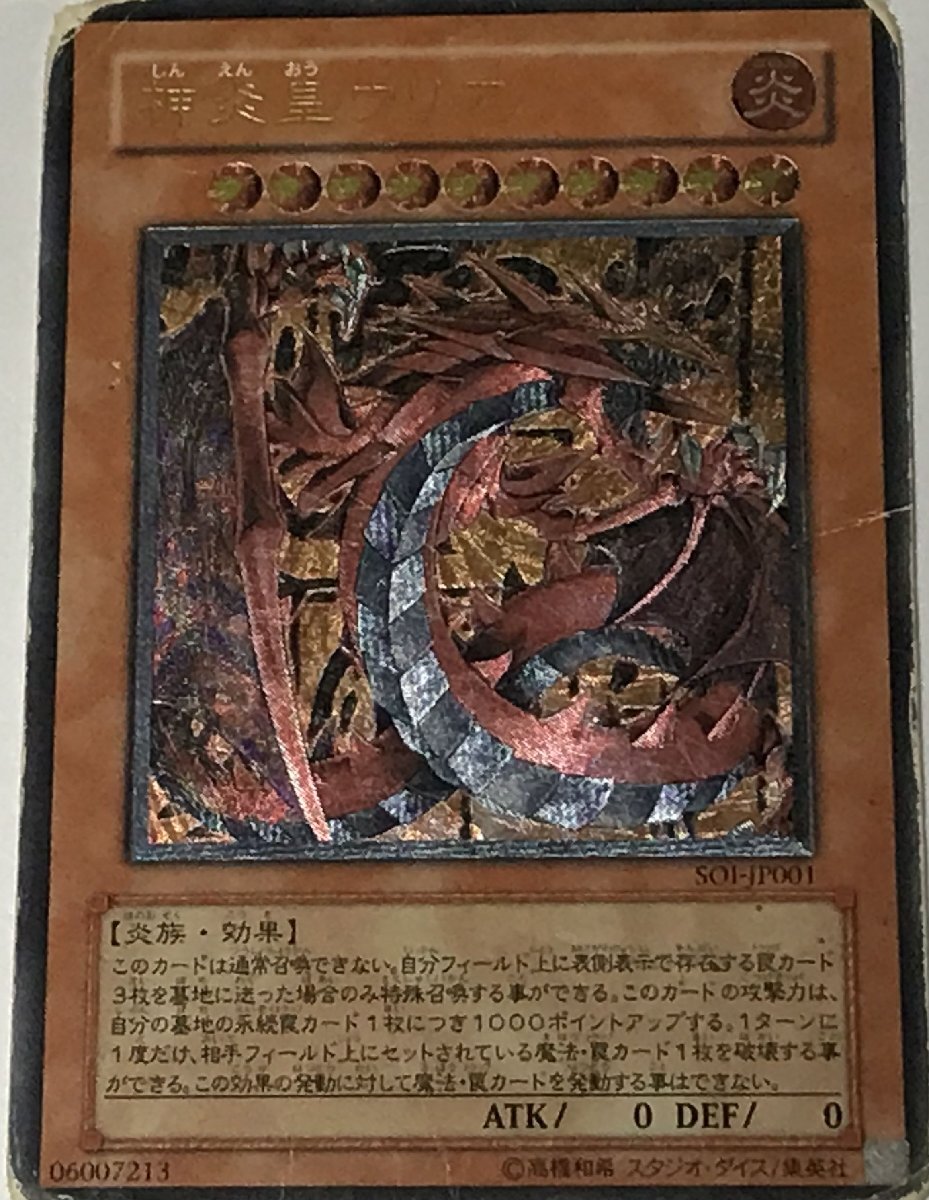 しん えん おう
神炎皇ウリア
炎
SOI-JP001
【炎族・効果】
このカードは通常召喚できない。自分フィールド上に表側表示で存在する罠カード
3枚を墓地に送った場合のみ特殊召喚する事ができる。このカードの攻撃力は、
自分の墓地の永続罠カード1枚につき1000ポイントアップする。1ターンに
1度だけ、相手フィールド上にセットされている魔法・罠カード1枚を破壊する事
ができる。この効果の発動に対して魔法・罠カードを発動する事はできない。
ATK/ 0 DEF/ 0
06007213 ©高橋和希 スタジオ・ダイス/集英社